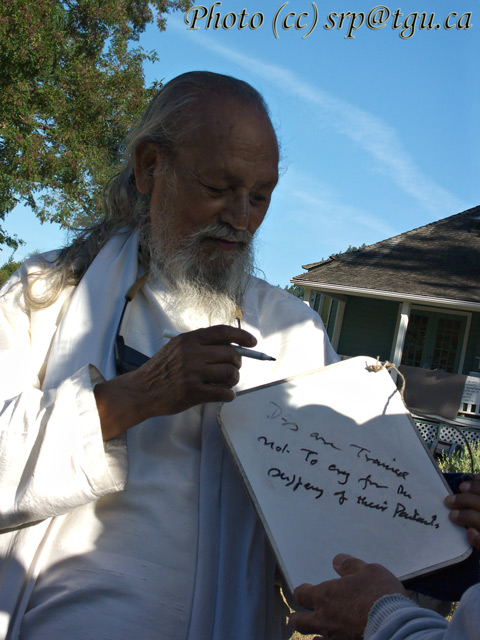 Photo (cc) srp@tgu.ca
Drs are Trained
not. To cry for the
suffering of their Patients